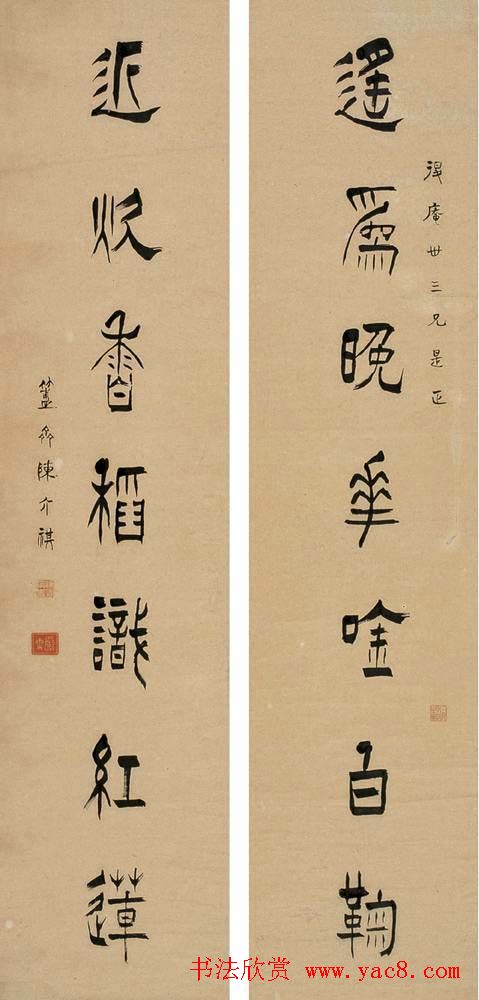 遙爲晚華唫白鞠
庵世三兄是正
近炊香稻識紅蓮
簠齋陳介祺
书法欣赏 www.yac8.com